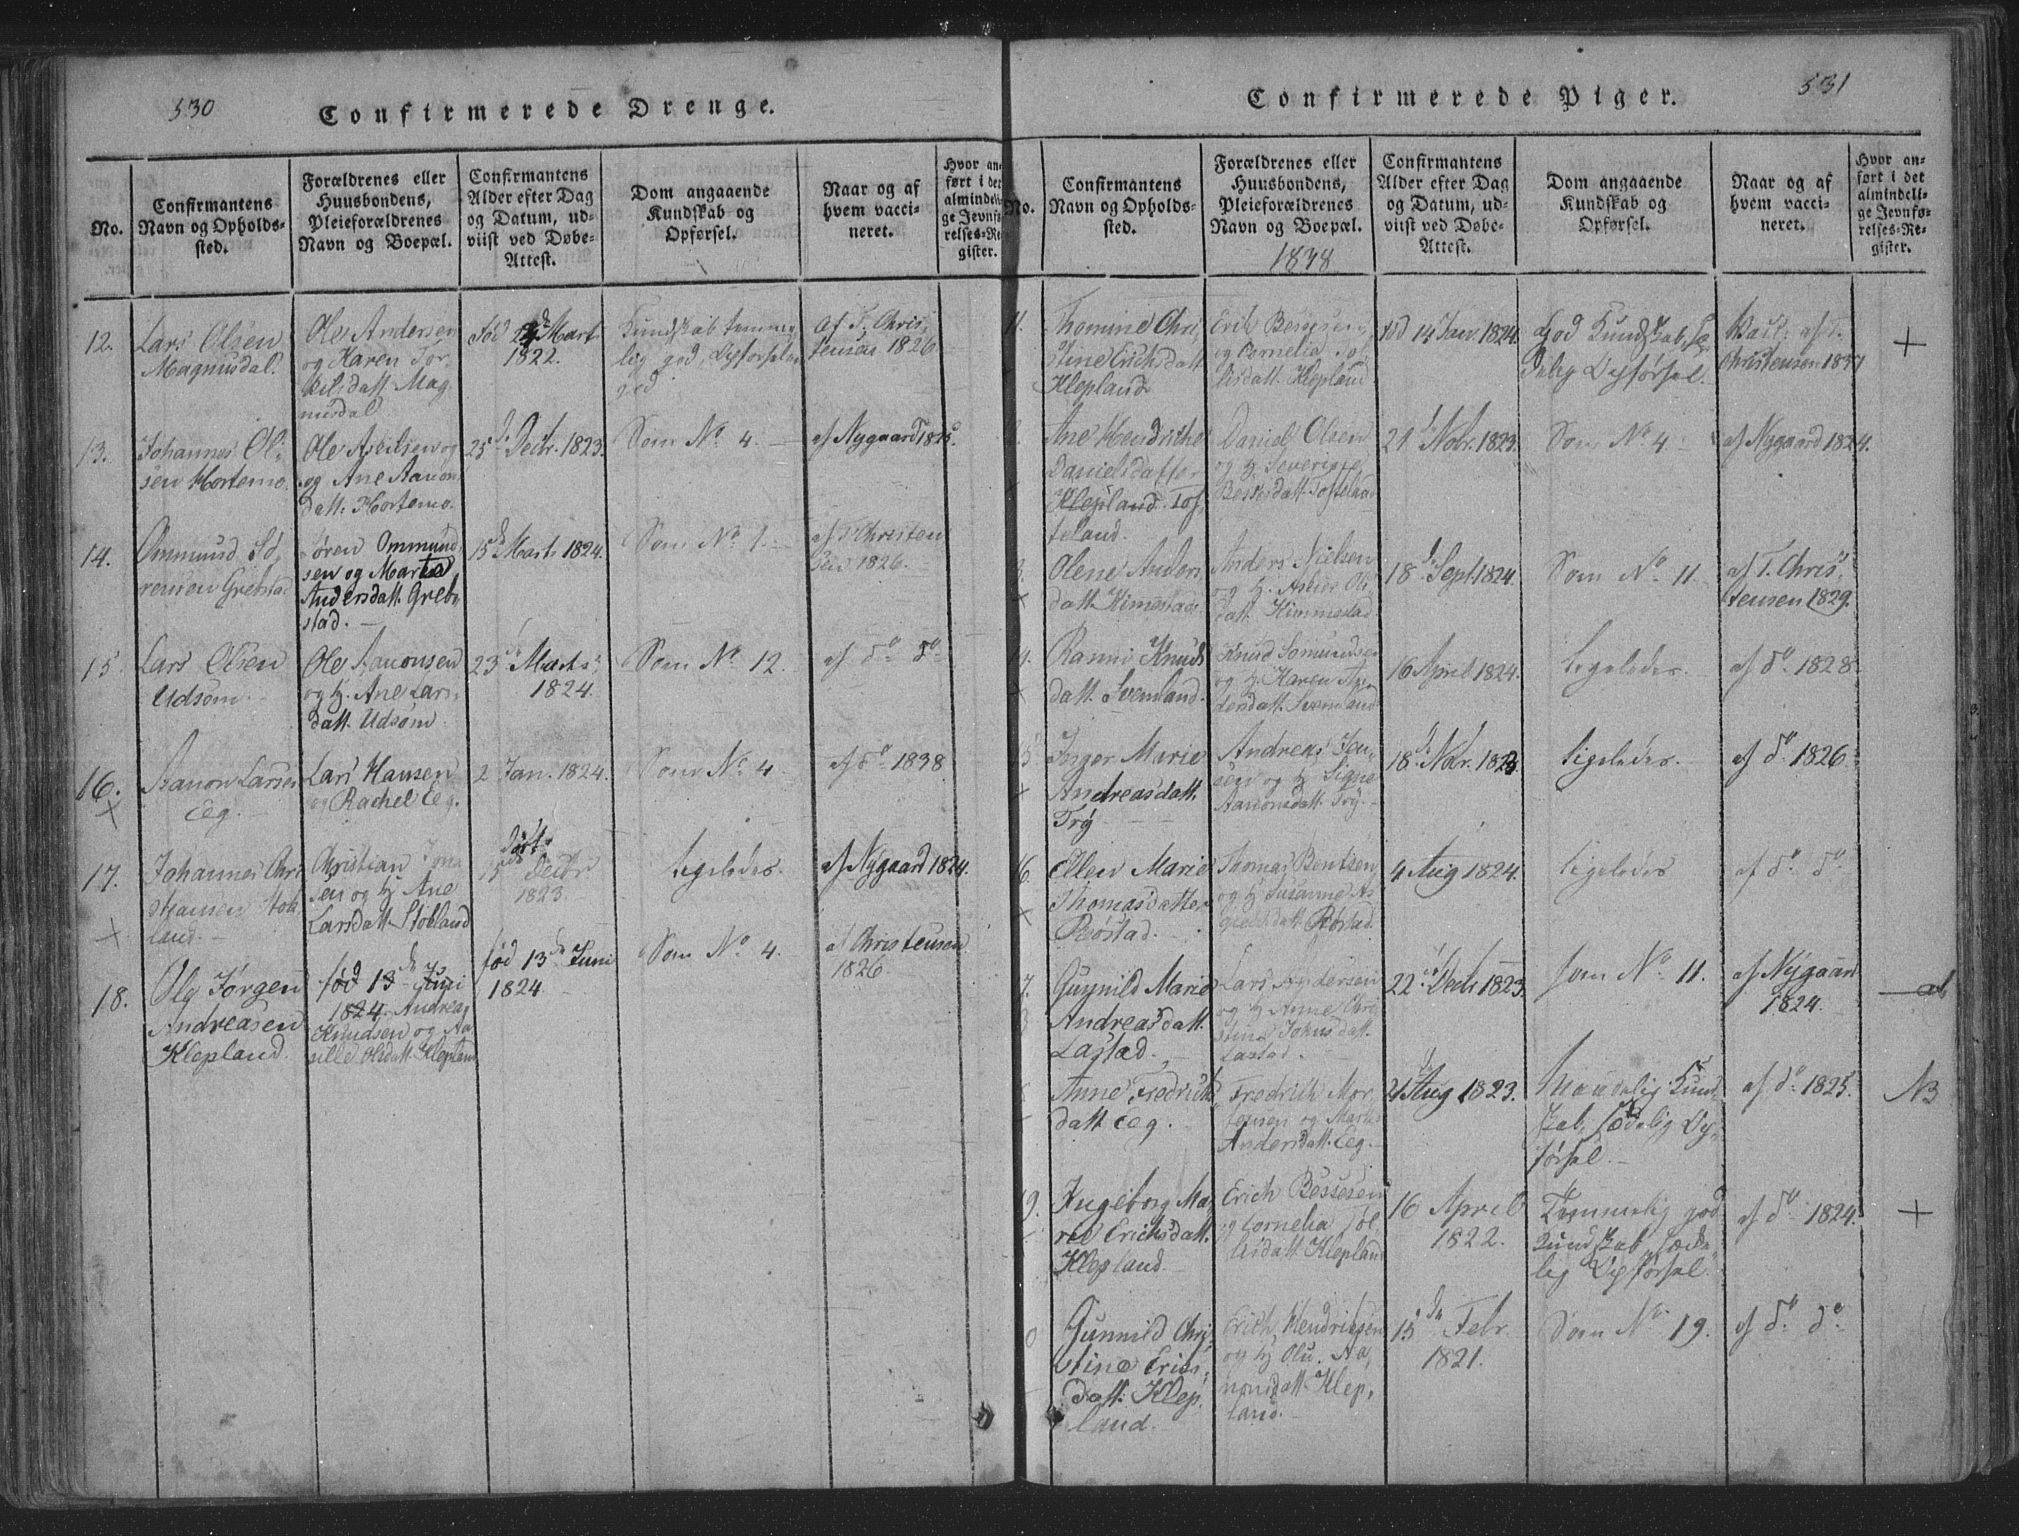 530
Confirmerede Drenge.
No.
Confirmantens
Navn og Opholds-
sted.
Forældrenes eller
Huusbondens,
Pleieforældrenes
Navn og Boepæl.
Confirmantens
Alder efter Dag
og Datum, ud-
viist ved Døbe-
Attest.
Dom angaaende
Kundskab og
Opførsel.
Naar og af
hvem vacci-
neret.
Hvor an-
ført i det
almindeli-
ge Jevnfø-
relses-Re-
gister.
12.
Lars Olsen
Magnusdal.
Ole Andersen
og Karen Tor
kilsdatt. Mag
nusdal
fød Mart
1822.
Kundskab temme
lig god, Opførsel
god
af T. Chris
tensen 1826
13.
Johannes Ol
sen Hortemo.
Ole Aseilsen og
og Ane Aanon
datt. Hortemo.
25 Decbr. 1823.
Som No. 4.
af Nygaard 1825.
14.
Ommund Sø
rensen Grebstad
Søren Ommund
sen og Marte
Andersdatt. Greb
stad.
15 Marts 1824.
Som No. 1.
af T. Christen
sen 1826.
15
Lars Olsen
Udsøm.
Ole Aanonsen
og H. Ane Lars
datt. Udsøm.
23 Marts
1824.
Som No. 12.
af do. do.
16.
+
Aanon Larsen
Eeg.
Lars Hansen
og Rachel Eeg.
2 Jan. 1824.
Som No. 4
af do. 1838.
17.
+
Johannes Chri
stiansen Stok
land.
Christian
sen og H. Ane
Larsdatt. Stokland
døbt
15 Decbr
1823.
Ligeledes.
af Nygaard 1824.
18.
Ole Jørgen
Andreasen
Klepland.
fød 13 Juni
1824. Andreas
Knudsen og Aa
sille Olsdatt. Klepland
fød 13 Juni
1824
Som No. 4.
af Christensen
1826.
531
Confirmerede Piger.
No.
Confirmantens
Navn og Opholds-
sted.
Forældrenes eller
Huusbondens,
Pleieforældrenes
Navn og Boepæl.
1838
Confirmantens
Alder efter Dag
og Datum, ud-
viist ved Døbe-
Attest.
Dom angaaende
Kundskab og
Opførsel.
Naar og af
hvem vacci-
neret.
Hvor an-
ført i det
almindeli-
ge Jevnfø-
relses-Re-
gister.
11.
Thomine Chri
stine Erichsdatt.
Klepland
Erik Bessesen
og Cornelia Tol
lisdatt. Klepland
fød 14 Jan. 1824.
God Kundskab, sæ
delig Opførsel.
Vacc. af T.
Christensen 1837
+
Ane Hendriche
Danielsdatter
Klepland. Tof
teland.
Daniel Olsen
og H. Severine
Bessesdatt. Tofteland
21 Nobr. 1823.
Som No. 4
af Nygaard 1824.
Olene Anders
datt. Himestad
Anders Nielsen
og H. Ols
datt. Himmestad
18 Sept. 1824.
Som No. 11
af T. Chris
tensen 1829.
Ranni Knuds
datt. Svenland.
Knud Aamundsen
og H. Karen An
dersdatt. Svenland
16 April 1824.
Ligeledes.
af do. 1828.
Inger Marie
Andreasdatt.
Try
Andreas Jen
sen og H. Signe
Aanonsdatt. Try.
18 Nobr. 1823.
Ligeledes.
af do. 1826.
16.
+
Ellen Marie
Thomasdatter
Røstad.
Thomas Bentsen
og H. Susanne As
datt. Røstad.
4 Aug 1824.
Ligeledes
af do. do.
7.
Gunnild Marie
Andreasdatt.
Lastad.
Lars Andersen
og H. Anne Chri
stine Johnsdatt.
Lastad.
22 Decbr 1823.
som No. 11.
af Nygaard
1824.
Anne Fredriks
datt. Eeg.
Fredrich Mor
tensen og Marte
Andersdatt. Eeg.
21 Aug 1823.
Maadelig Kund
skab, sædelig Op
førsel.
af do. 1825.
NB
19.
Ingeborg Ma
rie Erichsdatt.
Klepland.
Erich Bessesen
og Cornelia Tol
lisdatt. Klepland
16 April
1822.
Temmelig god
Kundskab, sæde
lig Opførsel.
af do. 1824.
+
0
Gunnild Chri
stine Erics
datt. Klep
land.
Erich Hendriksen
og H. Olu. Aa
nonsdatt. Klep
land.
15 Febr
1821.
Som No. 19.
af do. do.